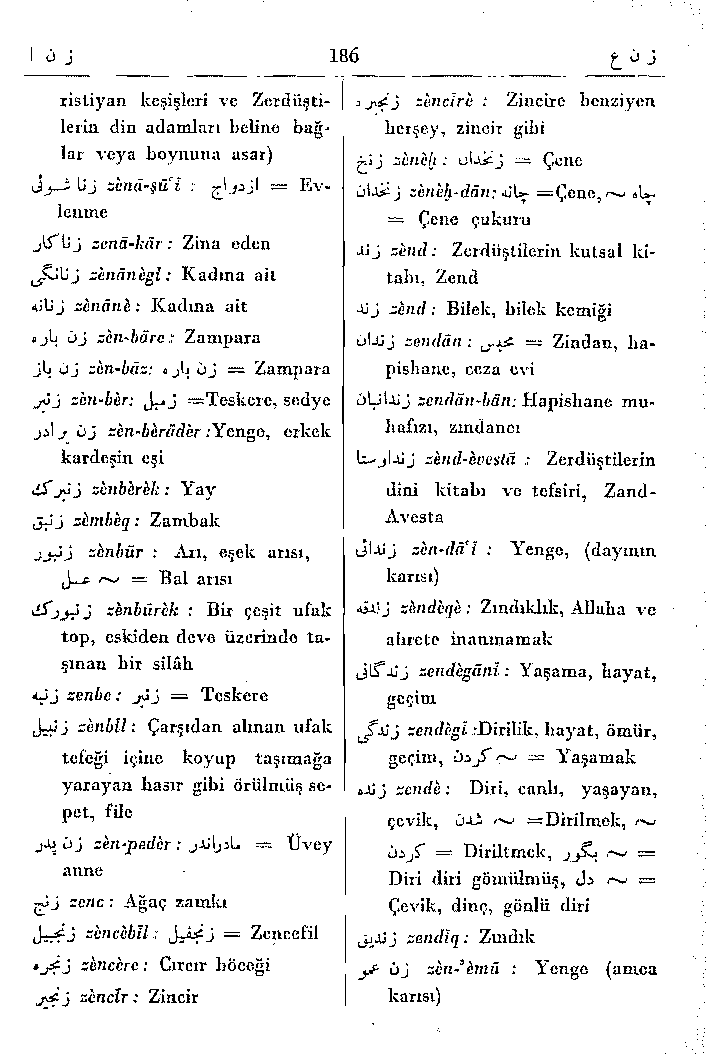 ز ن ا
186
ز ن ع
ristiyan keşişleri ve Zerdüşti-
lerin din adamları beline bağ-
lar veya boynuna asar)
زنا شوئی zènā-şūʿî : ازدواج = Ev-
lenme
زناکار zenā-kār : Zina eden
زنانگی zènānègî : Kadına ait
زنانه zènānè : Kadına ait
زن باره zèn-bāre : Zampara
زن باز zèn-bāz: زن باره = Zampara
زنبر zèn-bèr: زمبیل =Teskere, sedye
زن برادر zèn-bèrādèr :Yenge, erkek
kardeşin eşi
زنبرک zènbèrèk : Yay
زنبق zèmbèq : Zambak
زنبور zènbūr : Arı, eşek arısı,
عسل ~ = Bal arısı
زنبورک zènbūrèk : Bir çeşit ufak
top, eskiden deve üzerinde ta-
şınan bir silâh
زنبه zenbe : زنبر = Teskere
زنبیل zènbîl : Çarşıdan alınan ufak
tefeği içine koyup taşımağa
yarayan hasır gibi örülmüş se-
pet, file
زن پدر zèn-peder : مادراندر = Üvey
anne
زنج zenc : Ağaç zamkı
زنجبیل zèncèbîl : زنجفیل = Zencefil
زنجره zèncère : Cırcır böceği
زنجیر zèncîr : Zincir
زنجیره zèncîrè : Zincire benziyen
herşey, zincir gibi
زنخ zènèḫ : زنخدان = Çene
زنخدان zènèḫ-dān: چانه =Çene, ~ چاه
= Çene çukuru
زند zènd : Zerdüştilerin kutsal ki-
tabı, Zend
زند zènd : Bilek, bilek kemiği
زندان zendān : محبس = Zindan, ha-
pishane, ceza evi
زندانبان zendān-bān: Hapishane mu-
hafızı, zındancı
زنداوستا zènd-èvestā : Zerdüştilerin
dini kitabı ve tefsiri, Zand-
Avesta
زندائی zèn-dāʿî : Yenge, (dayının
karısı)
زندقه zèndèqè : Zındıklık, Allaha ve
ahrete inanınamak
زندگانی zendègānî : Yaşama, hayat,
geçim
زندگی zendègî :Dirilik, hayat, ömür,
geçim, کردن ~ = Yaşamak
زنده zende : Diri, canlı, yaşayan,
çevik, شدن ~ =Dirilmek, ~
کردن = Diriltmek, بگور ~ =
Diri diri gömülmüş, دل ~ =
Çevik, dinç, gönlü diri
زندیق zendîq : Zındık
زن عمو zèn-ʾèmū : Yenge (amca
karısı)